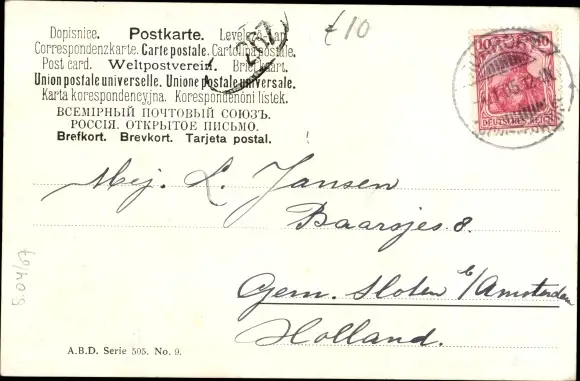 Dopisnice. Postkarte. Levelező-Lap
Correspondenzkarte. Carte postale. Cartolina postale.
Post card. Weltpostverein. Briefkaart.
Union postale universelle. Unione postale universale.
Karta korespondencyjna. Korespondenčni listek.
ВСЕМІРНЫЙ ПОЧТОВЫЙ СОЮЗЪ.
РОССІЯ. ОТКРЫТОЕ ПИСЬМО.
Brefkort. Brevkort. Tarjeta postal.
257
£10
10 10
DEUTSCHES REICH
Mej. L. Jansen
Baarsjes 8.
Gem. Sloten b/Amsterdam
Holland.
A.B.D. Serie 505. No. 9.